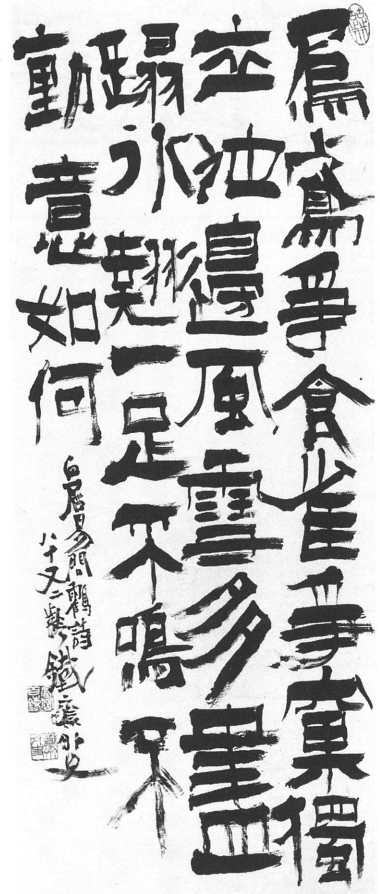 烏鳶爭食雀爭窠獨
立池邊風雪多盡
蹋冰翹一足不鳴不
動意如何
白居易問鶴詩
八十又二 鐵 外史